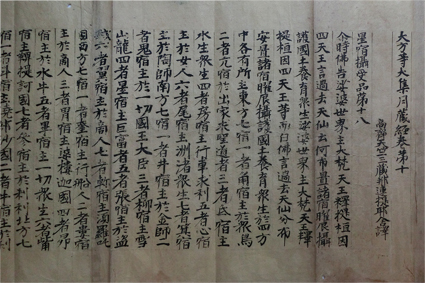 大方等大集月藏經卷第十
高齊天竺三藏那連提耶舍譯
星宿攝受品第十八
尒時佛告娑婆世界主大梵天王釋提桓因
四天王言過去天仙云何布置諸宿曜辰攝
護國土養育衆生娑婆世界主大梵天王釋
提桓因四天王等而白佛言過去天仙分布
安置諸宿曜辰攝護國土養育衆生於四方
中各有所主東方七宿一者角宿主於衆鳥
二者亢宿主於出家求聖道者三者氐宿主
水生衆生四者房宿主行車求利五者心宿
主於女人六者尾宿主洲渚衆生七者箕宿
主於陶師南方七宿一者井宿主於金師二
者鬼宿主於一切國王大臣三者柳宿主雪
山龍四者星宿主巨富者五者張宿主於盜
賊六者翼宿主於商人七者軫宿主須羅吒
國西方七宿一者奎宿主行船人二者婁宿
主於商人三者胃宿主婆樓迦國四者昴
宿主於水牛五者畢宿主一切衆生六者觜
宿主鞞提訶國七者參宿主於刹利北方七
宿一者斗宿主澆部沙國二者牛宿主於刹